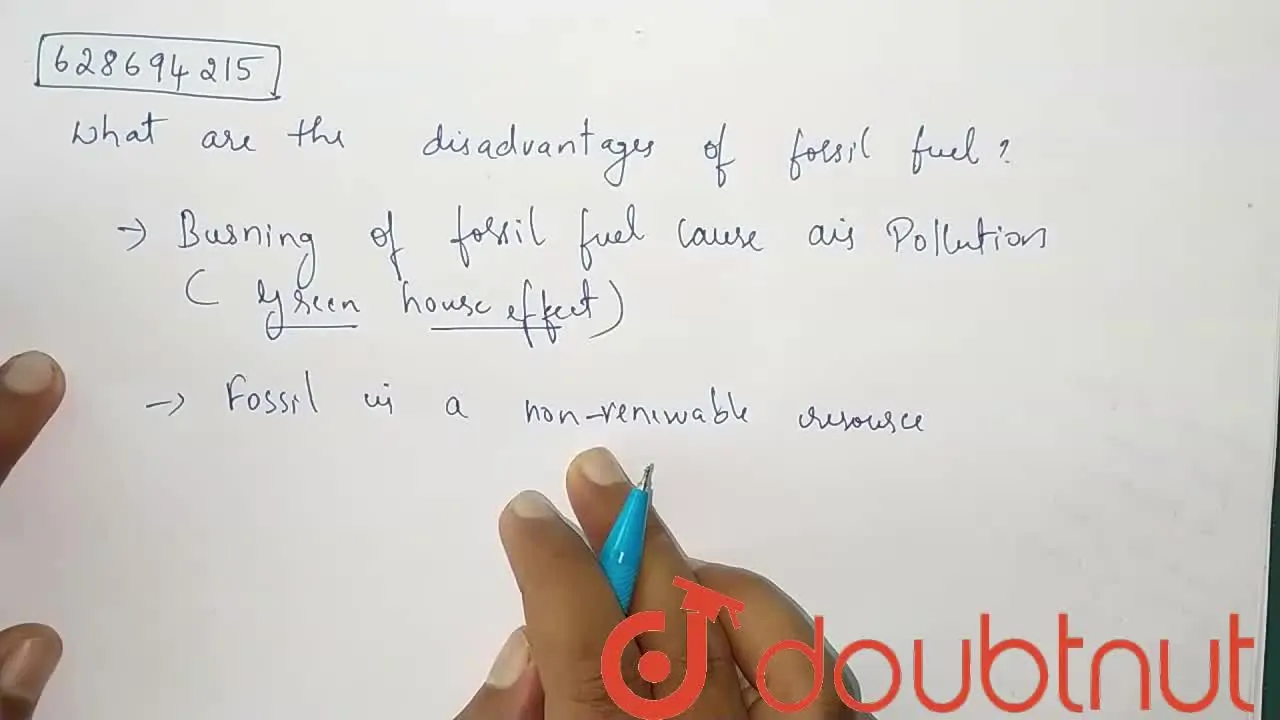 628694215
What are the disadvantages of fossil fuel?
→ Burning of fossil fuel cause air Pollution
( Green house effect)
→ Fossil is a non-reniwable resource
doubtnut